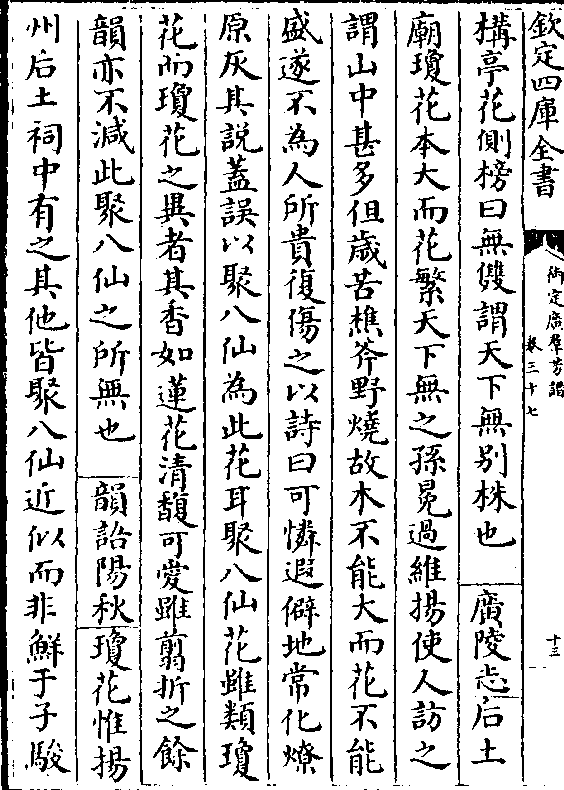 欽定四庫全書
御定廣羣芳譜
卷三十七
十三
構亭花側榜曰無雙謂天下無别株也　廣陵志后土
廟瓊花本大而花繁天下無之孫冕過維揚使人訪之
謂山中甚多但歲苦樵斧野燒故木不能大而花不能
盛遂不為人所貴復傷之以詩曰可憐遐僻地常化燎
原灰其說蓋誤以聚八仙為此花耳聚八仙花雖類瓊
花而瓊花之異者其香如蓮花清馥可愛雖翦折之餘
韻亦不減此聚八仙之所無也　韻語陽秋瓊花惟揚
州后土祠中有之其他皆聚八仙近似而非鮮于子駿